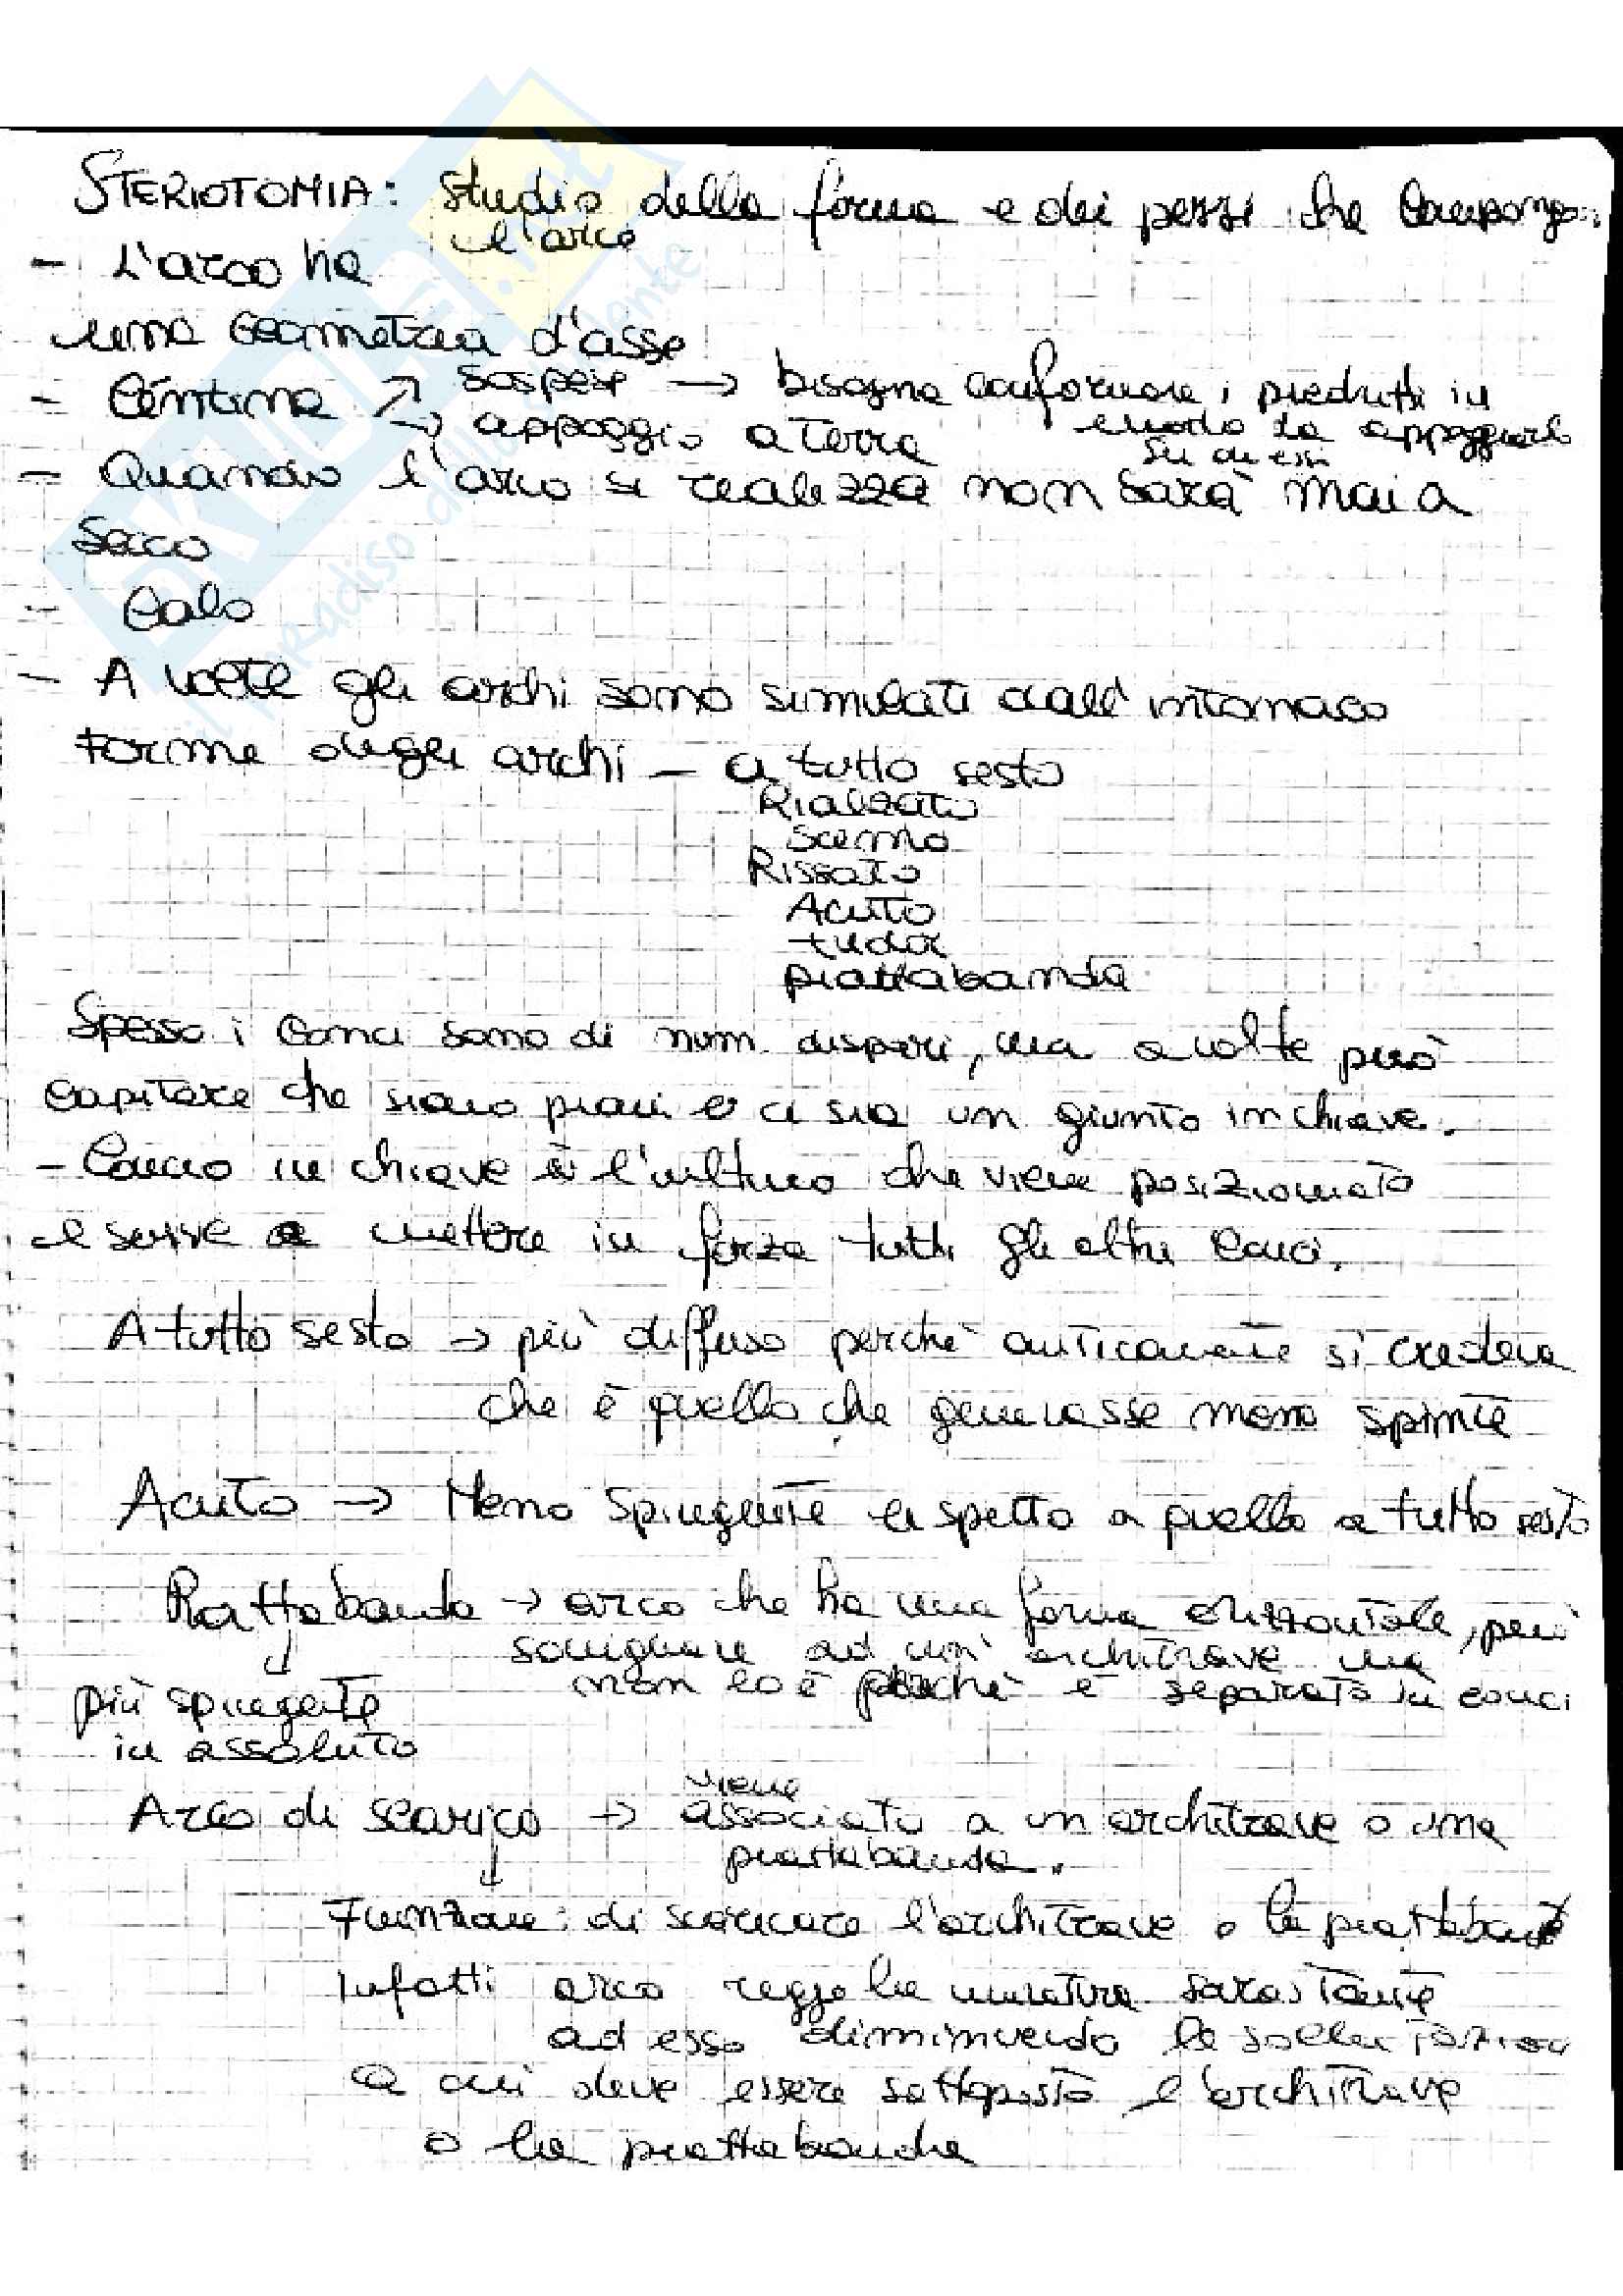 STERIOTOMIA: Studio della forma e dei pezzi che compongo
l'arco
- L'arco ha
una Geometria d'asse
- Centina ↗ sospese → bisogna conformare i piedritti in
modo da appoggiarlo
su di essi
→ appoggio a terra
- Quando l'arco si realizza non sarà mai a
secco
- Calo
- A volte gli archi sono simulati dall'intonaco
Forme degli archi - a tutto sesto
Rialzato
Scemo
Rissato
Acuto
tudor
piattabanda
Spesso i conci sono di num. dispari, ma a volte può
capitare che siano pari e ci sia un giunto in chiave.
- Concio in chiave è l'ultimo che viene posizionato
e serve a mettere in forza tutti gli altri conci.
A tutto sesto → più diffuso perché anticamente si credeva
che è quello che generasse meno spinte
Acuto → Meno spingente rispetto a quello a tutto sesto
Piattabanda → arco che ha una forma orizzontale, può
somigliare ad un' architrave ma
non lo è perché è separata in conci
↓
più spingente
in assoluto
Arco di scarico → viene
associato a un architrave o una
piattabanda.
↓
Funzione: di scaricare l'architrave o la piattabanda
Infatti arco regge la muratura sovrastante
ad esso diminuendo le sollecitazioni
a cui deve essere sottoposta l'architrave
o la piattabanda
il paradiso dello studente
SKUOLA.net